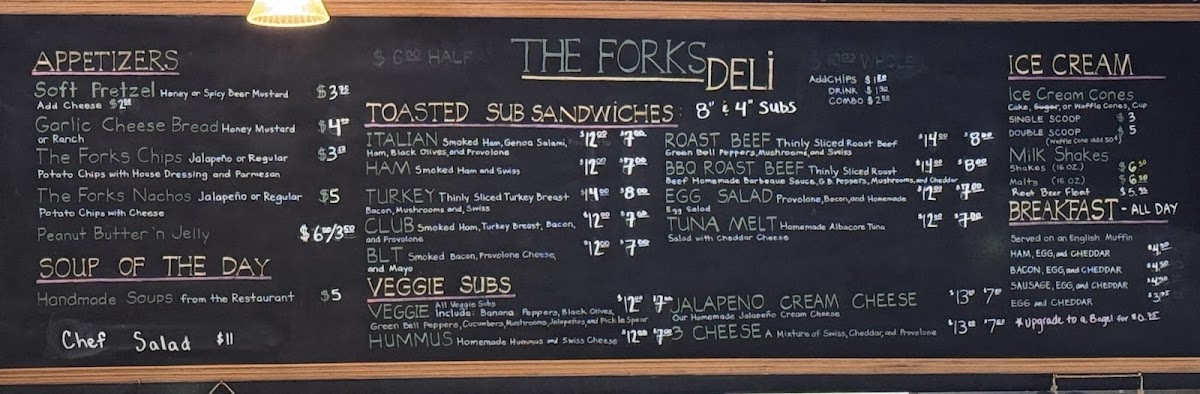 $ 6.00 HALF
THE FORKS DELi
WHOLE
AddCHiPS
DRINK
COMBO
APPETIZERS
Soft Pretzel Honey or Spicy Beer Mustard
Add Cheese
Garlic Cheese Bread Honey Mustard $4
or Ranch
The Forks Chips Jalapeño or Regular $3.50
Potato Chips with House Dressing and Parmesan
The Forks Nachos Jalapeño or Regular $5
Potato Chips with Cheese
Peanut Butter 'n Jelly $6.00/3.50
SOUP OF THE DAY
Handmade Soups from the Restaurant $5
Chef Salad $11
TOASTED SUB SANDWiCHES: 8" & 4" Subs
ITALIAN Smoked Ham, Genoa Salami, $12.00 $7.00
Ham, Black Olives, and Provolone
HAM Smoked Ham and Swiss $12.00 $7.00
TURKEY Thinly Sliced Turkey Breast $14.00 $8.00
Bacon, Mushrooms and, Swiss
CLUB Smoked Ham, Turkey Breast, Bacon, $12.00 $7.00
and Provolone
BLT Smoked Bacon, Provolone Cheese, $12.00 $7.00
and Mayo
ROAST BEEF Thinly Sliced Roast Beef $14.00 $8.00
Green Bell Peppers, Mushrooms, and Swiss
BBQ ROAST BEEF Thinly Sliced Roast $14.00 $8.00
Beef Homemade Barbeque Sauce, G.B. Peppers, Mushrooms, and Cheddar
EGG SALAD Provolone, Bacon, and Homemade $12.00 $7.00
Egg Salad
TUNA MELT Homemade Albacore Tuna $12.00 $7.00
Salad with Cheddar Cheese
VEGGIE SUBS
All Veggie Subs
VEGGIE Include: Banana Peppers, Black Olives, $12.00 $7.00
Green Bell Peppers, Cucumbers, Mushrooms, Jalapeños, and Pickle Spear
HUMMUS Homemade Hummus and Swiss Cheese $12.00 $7.00
JALAPENO CREAM CHEESE $13.00 $7.00
Our Homemade Jalapeño Cream Cheese
3 CHEESE A Mixture of Swiss, Cheddar, and Provolone $13.00 $7.00
ICE CREAM
Ice Cream Cones
Cake, Sugar, or Waffle Cones, Cup
SINGLE SCOOP $3
DOUBLE SCOOP $5
(Waffle Cone add 50¢)
Milk Shakes
Shakes (16 OZ) $6.50
Malts (16 OZ) $6.50
Root Beer Float $5.95
BREAKFAST - ALL DAY
Served on an English Muffin
HAM, EGG, and CHEDDAR $4.50
BACON, EGG, and CHEDDAR $4.50
SAUSAGE, EGG, and CHEDDAR $4.50
EGG and CHEDDAR $3.95
*Upgrade to a Bagel for